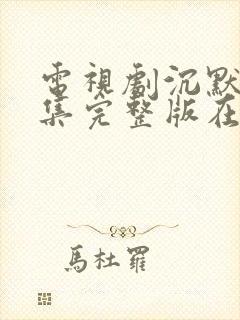 電視劇沉默
集完整版在
馬杜羅